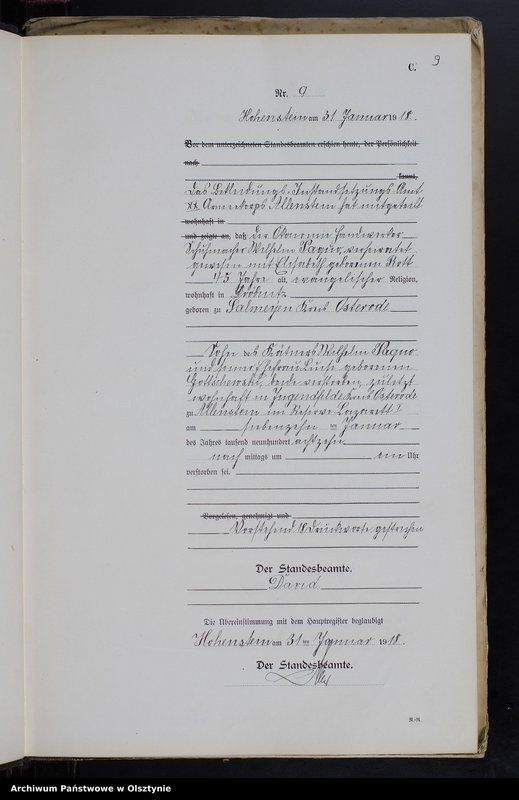 C. 9
Nr. 9
Hohenstein am 31 Januar 1918.
Vor dem unterzeichneten Standesbeamten erschien heute, der Persönlichkeit
nach
kannt,
Das Bekleidungs-Instandsetzungs Amt
XX Armeekorps Allenstein hat mitgeteilt
wohnhaft in
und zeigte an, daß der Ökonomie Handwerker
Schuhmacher Wilhelm verheiratet
gewesen mit Elisabeth geborenen Rott
45 Jahre alt, evangelischer Religion,
wohnhaft in
geboren zu Salmeyen Kreis Osterode
Sohn des Kätners Wilhelm
und seiner Ehefrau geborenen
beide verstorben, zuletzt
wohnhaft in Kreis Osterode
zu Allenstein im Reserve Lazarett I
am siebenzehn ten Januar
des Jahres tausend neunhundert achtzehn
nach mittags um ein Uhr
verstorben sei.
Vorgelesen, genehmigt und
Vorstehend 18 Druckworte gestrichen
Der Standesbeamte.
David
Die Übereinstimmung mit dem Hauptregister beglaubigt
Hohenstein am 31 ten Januar 1918.
Der Standesbeamte.
N.-H.
Archiwum Państwowe w Olsztynie